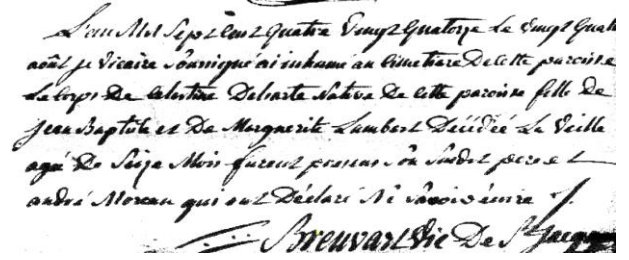 L'an Mil Sept Cent Quatre Vingt Quatorze Le Vingt Quatr
août je vicaire soussigné ai inhumé au Cimetiere De cette paroisse
Le corps De Celestine Delsarte Native De cette paroisse fille de
Jean Baptiste et De Marguerite Lambert Décédée La Veille
agée De Seize Mois furent presens Son Susdit pere et
andré Moreau qui ont Déclaré Né Savoir écrire
Breuvart Vic De St Jacques